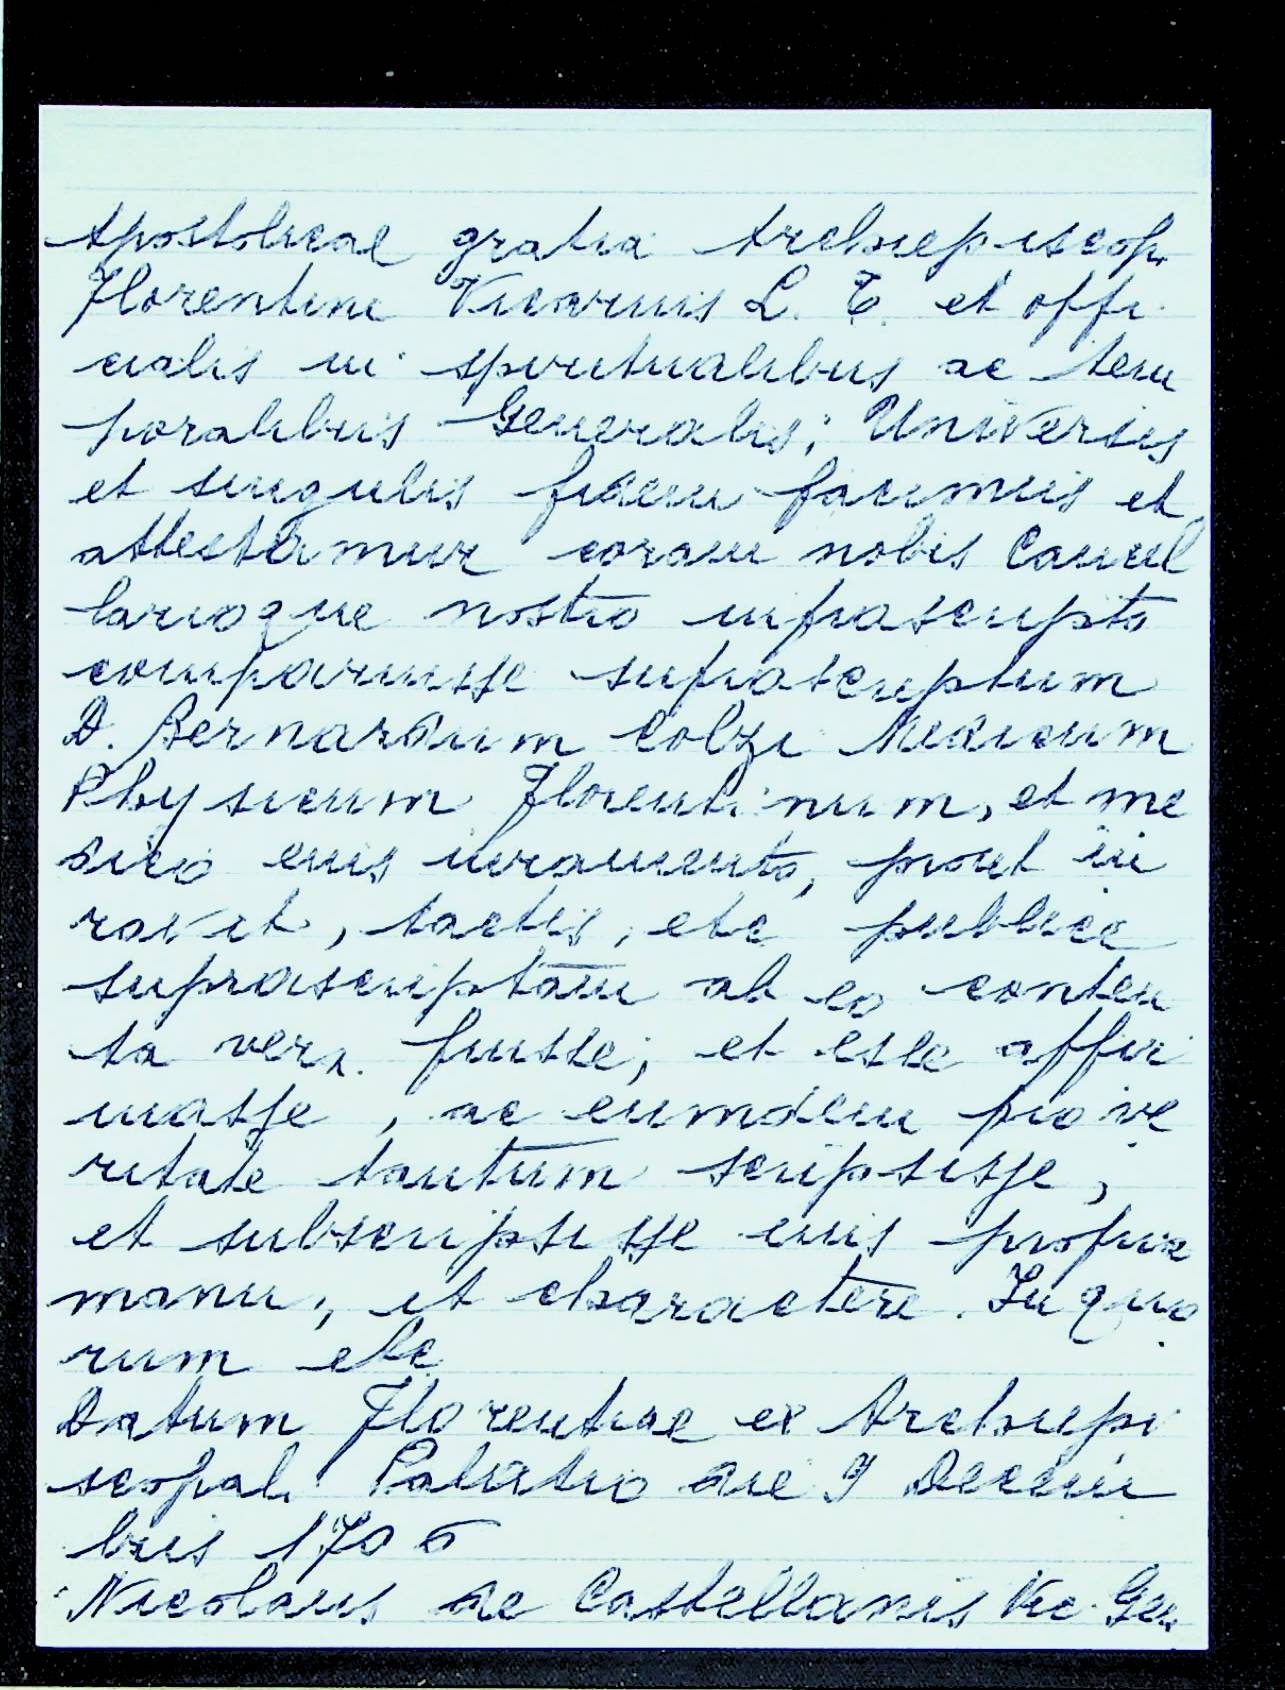 Apostolicae gratia Archiepiscop.
Florentini Vicarius L. T. et offi
cialis in spiritualibus ac tem
poralibus Generalis; Universis
et singulis fidem facimus et
attestamur coram nobis Cancel
larioque nostro infrascripto
comparuisse suprascriptum
D. Bernardum Colzi Medicum
Physicum Florentinum, et me
dico eius iuramento, prout iu
ravit, tactis, etc publice
suprascriptam ab eo conten
ta vera fuisse, et esse affir
masse, ac eumdem pro ve
ritate tantum scripsisse,
et subscripsisse eius propria
manu, et charactere. In quo
rum etc
Datum Florentiae ex Archiepi
scopali Palatio die 9 Decem
bris 1706
Nicolaus de Castellanis Vic. Gen.